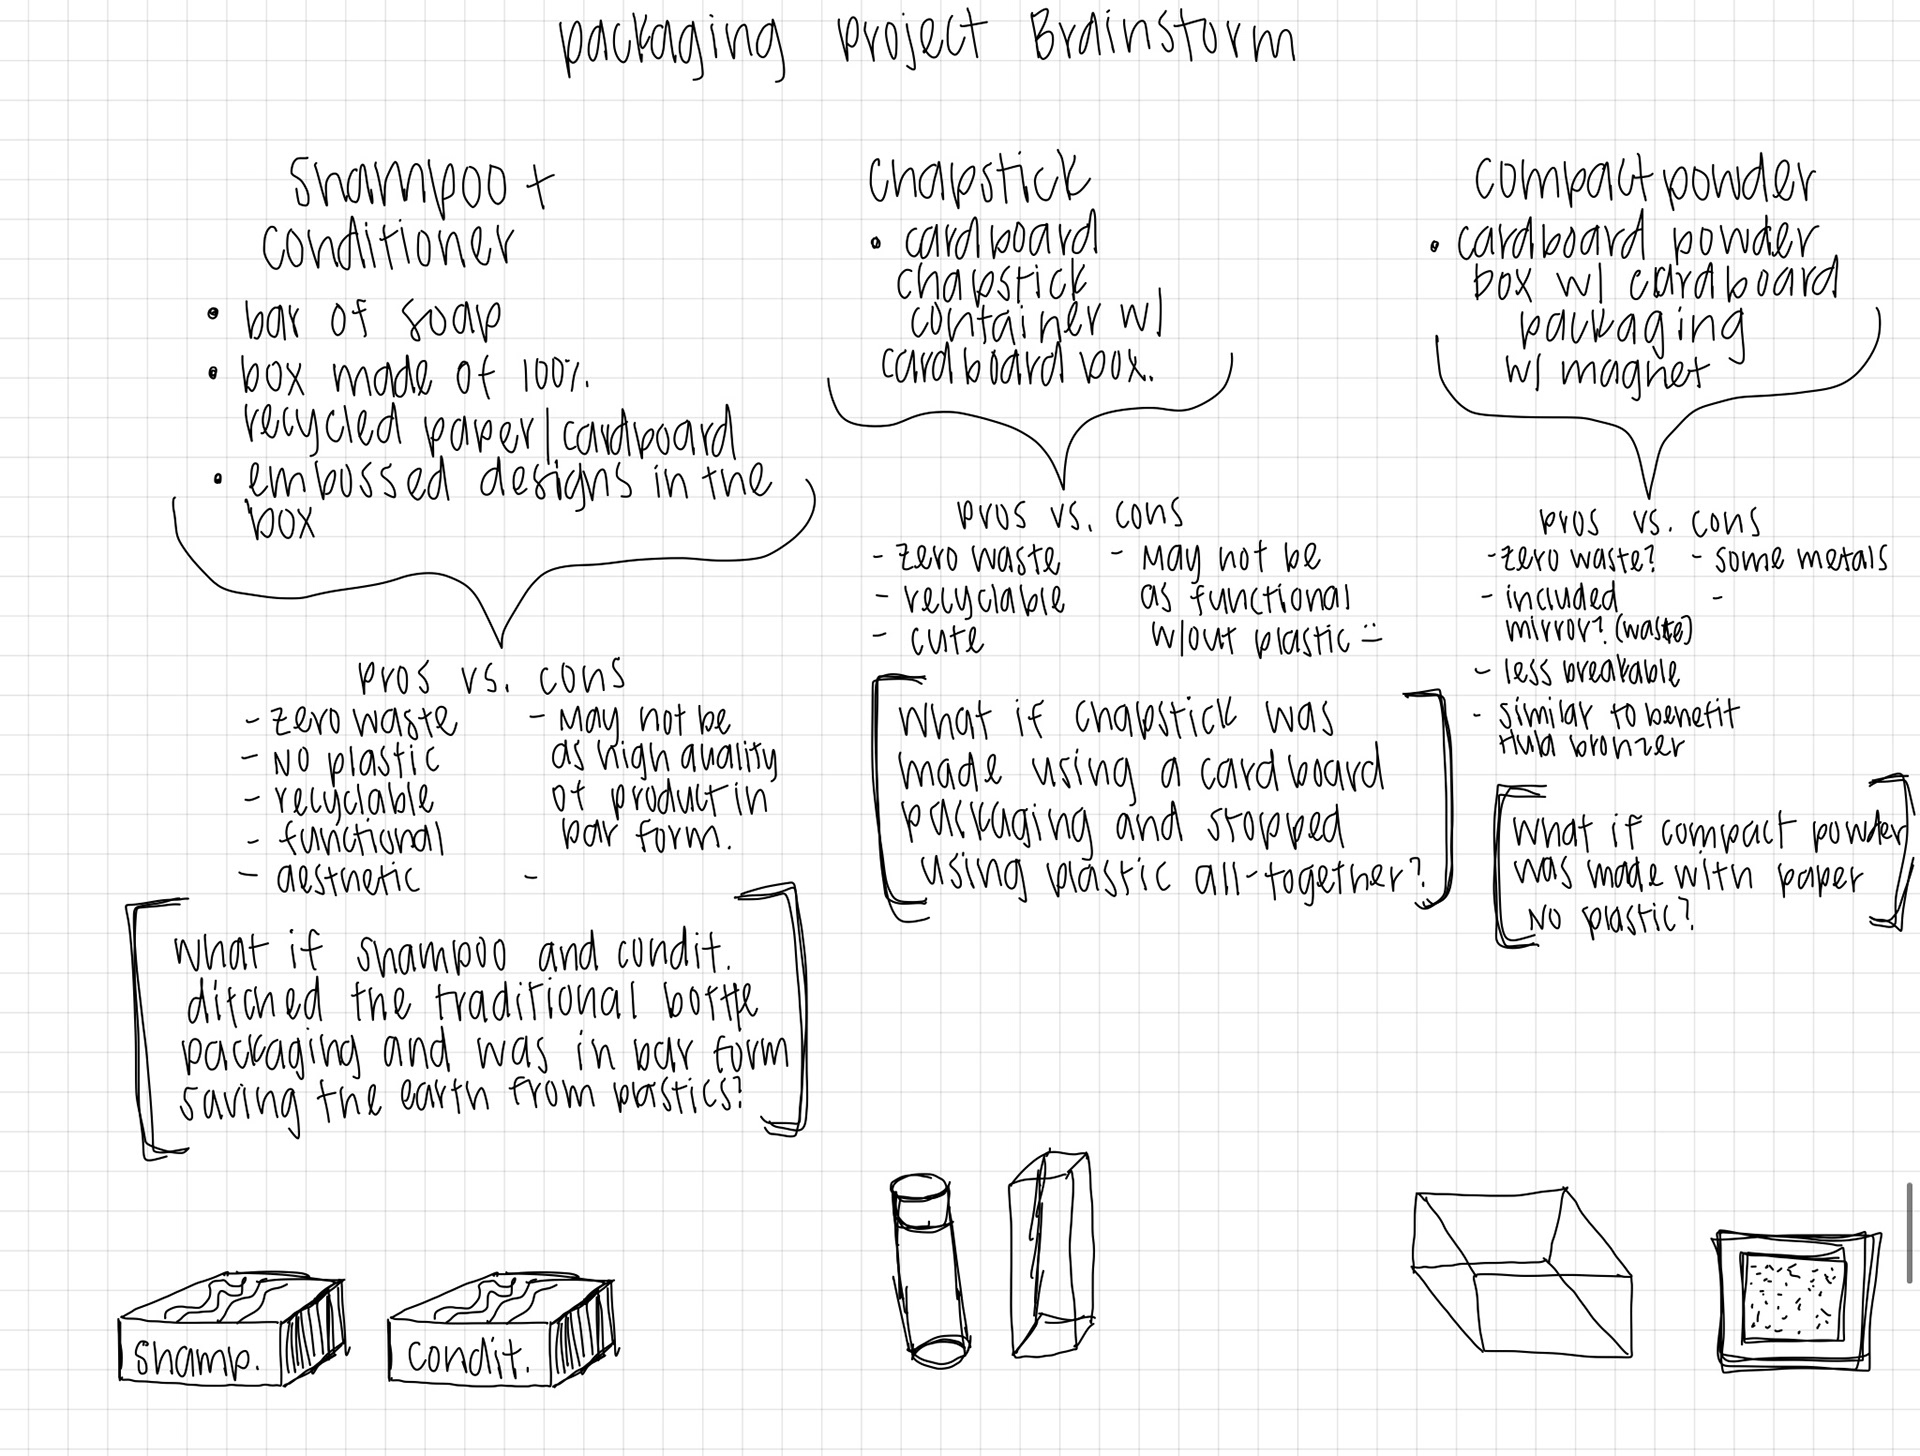 packaging project Brainstorm
Shampoo +
conditioner
• bar of soap
• box made of 100%
recycled paper/cardboard
• embossed designs in the
box
pros vs. cons
- zero waste
- No plastic
- recyclable
- functional
- aesthetic
- May not be
as high quality
of product in
bar form.
-
[What if shampoo and condit.
ditched the traditional bottle
packaging and was in bar form
saving the earth from plastics?]
shamp.
condit.
Chapstick
• cardboard
chapstick
container w/
cardboard box.
pros vs. cons
- zero waste
- recyclable
- cute
- May not be
as functional
w/out plastic :)
[What if chapstick was
made using a cardboard
packaging and stopped
using plastic all-together?]
compact powder
• cardboard powder
box w/ cardboard
packaging
w/ magnet
pros vs. cons
- zero waste?
- included
mirror? (waste)
- less breakable
- similar to benefit
Hula bronzer
- some metals
-
[What if compact powder
was made with paper
No plastic?]